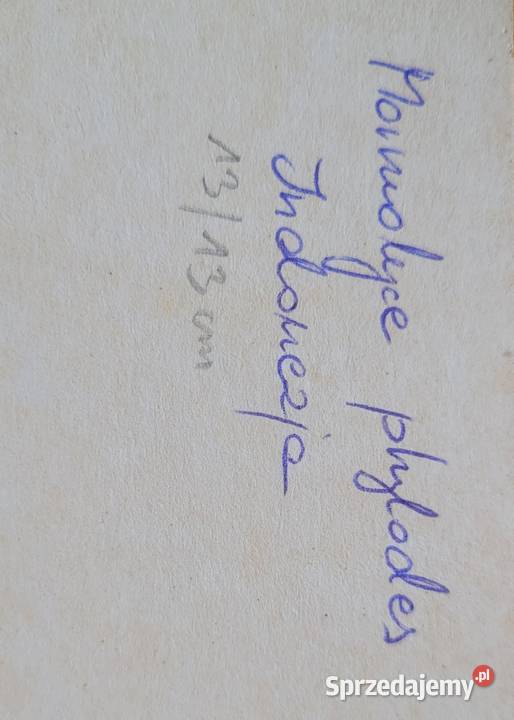 Mormolyce phylodes
Indonezja
13/13 cm
Sprzedajemy.pl